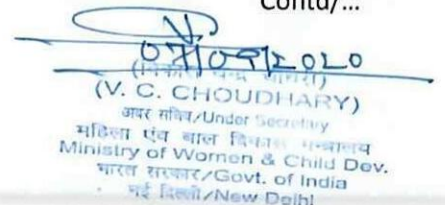 Contd/...
07/09/2020
(V. C. CHOUDHARY)
अवर सचिव/Under Secretary
महिला एंव बाल विकास मन्त्रालय
Ministry of Women & Child Dev.
भारत सरकार/Govt. of India
नई दिल्ली/New Delhi